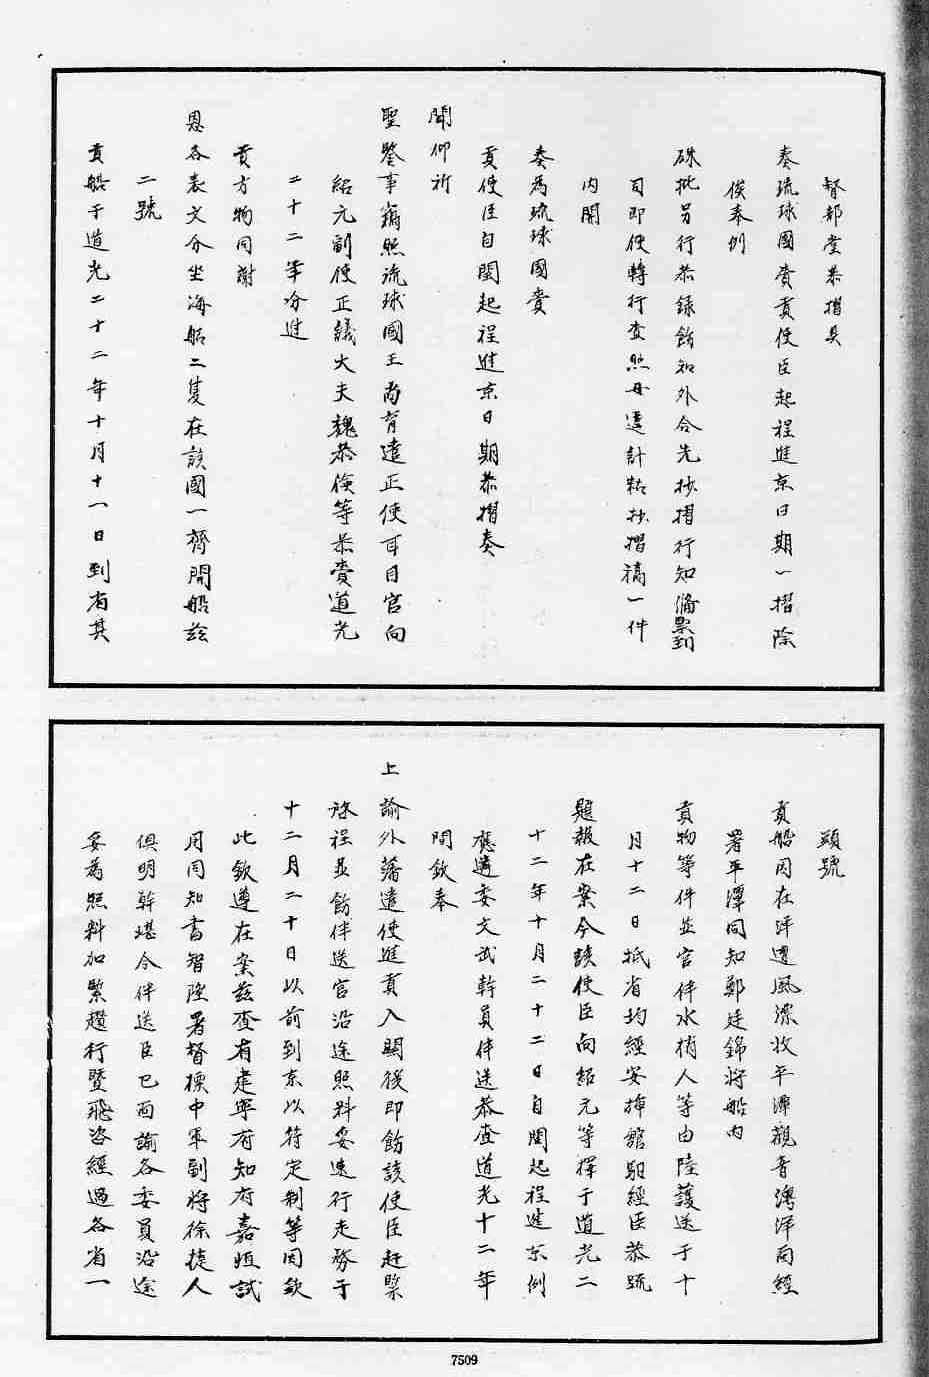 督部堂恭摺具
奏琉球國賫貢使臣起程進京日期一摺除
俟奉例
硃批另行恭錄飭知外合先抄摺行知備案到
司即便轉行查照毋違計粘抄摺稿一件
內開
奏為琉球國賫
貢使臣自閩起程進京日期恭摺奏
聞仰祈
聖鑒事竊照琉球國王尚育遣正使耳目官向
紹元副使正議大夫魏恭儉等恭賫道光
二十二年分進
貢方物同謝
恩各表文分坐海船二隻在該國一齊開船玆
二號
貢船于道光二十二年十月十一日到省其
頭號
貢船因在洋遭風漂收平潭觀音灣洋面經
署平潭同知鄭廷錦將船內
貢物等件並官伴水梢人等由陸護送于十
月十二日抵省均經安揷館驛經臣恭疏
題報在案今該使臣向紹元等擇于道光二
十二年十月二十二日自閩起程進京例
應遴委文武幹員伴送恭查道光十二年
間欽奉
上諭外藩遣使進貢入關後即飭該使臣赶緊
啓程並飭伴送官沿途照料妥速行走務于
十二月二十日以前到京以符定制等因欽
此欽遵在案玆查有建寧府知府嘉恒試
用同知書智陞署督標中軍副將徐捷人
俱明幹堪令伴送臣已面諭各委員沿途
妥為照料加緊趲行暨飛咨經過各省一
7509